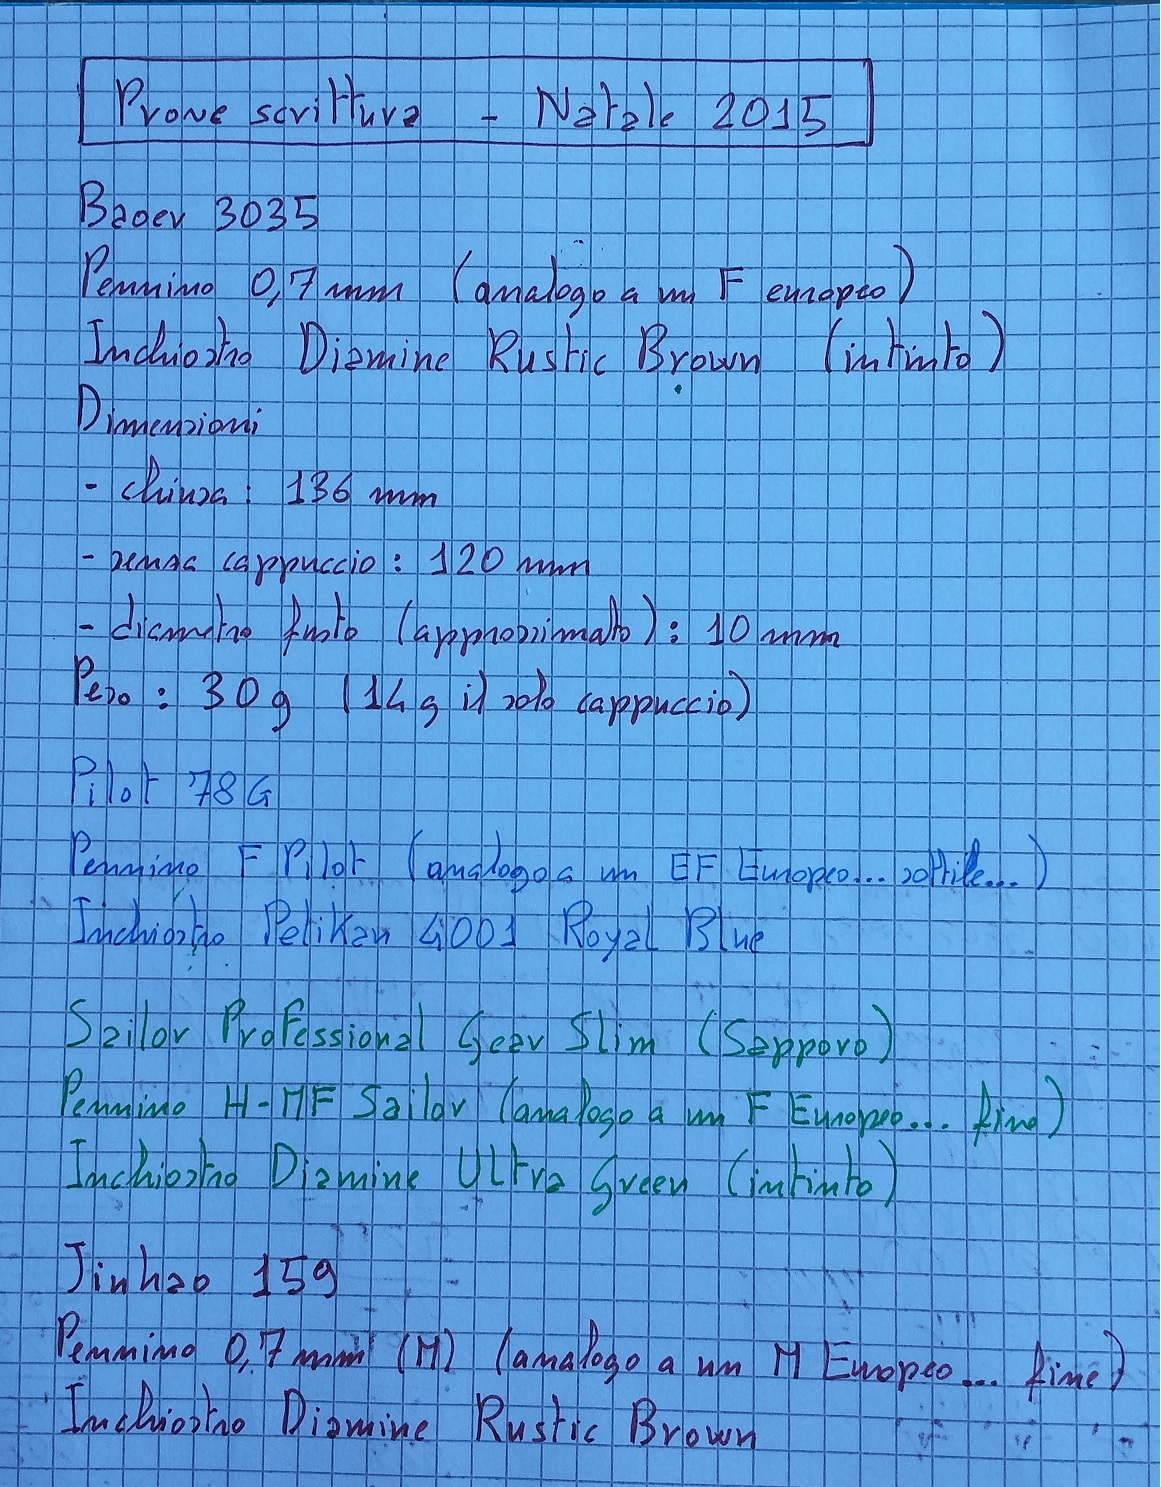 Prove scrittura - Natale 2015
Baoer 3035
Pennino 0,7 mm (analogo a un F europeo)
Inchiostro Diamine Rustic Brown (intinto)
Dimensioni
- chiusa: 136 mm
- senza cappuccio: 120 mm
- diametro fusto (approssimato): 10 mm
Peso: 30 g (14 g il solo cappuccio)
Pilot 78G
Pennino F Pilot (analogo a un EF Europeo... sottile...)
Inchiostro Pelikan 4001 Royal Blue
Sailor Professional Gear Slim (Sapporo)
Pennino H-MF Sailor (analogo a un F Europeo... fine)
Inchiostro Diamine Ultra Green (intinto)
Jinhao 159
Pennino 0,7 mm (M) (analogo a un M Europeo... fine)
Inchiostro Diamine Rustic Brown